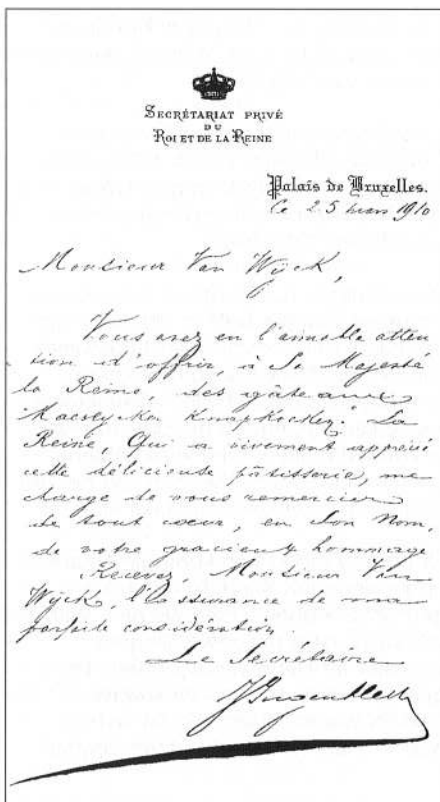 SECRÉTARIAT PRIVÉ
DU
ROI ET DE LA REINE
Palais de Bruxelles.
Ce 25 mars 1910
Monsieur Van Wÿck,
Vous avez eu l'aimable atten
tion d'offrir, à Sa Majesté
la Reine, des gâteaux
"Maeseycker Knapkoeken". La
Reine, Qui a vivement apprécié
cette délicieuse pâtisserie, me
charge de vous remercier
de tout cœur, en Son Nom,
de votre gracieux hommage
Recevez, Monsieur Van
Wÿck, l'assurance de ma
parfaite considération.
Le Secrétaire